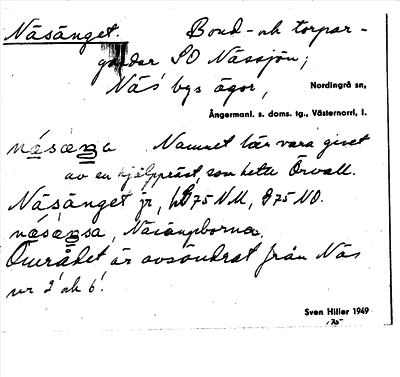 Näsänget. Bond- och torpar-
gårdar SO Nässjön;
Näs bys ägor,
Nordingrå sn,
Ångermanl. s. doms. tg., Västernorrl. l.
Namnet lär vara givet
av en hjälppräst, som hette Örvall.
Näsänget jr,
Näsängborna.
Området är avsöndrat från Näs
nr 2 och 6.
Sven Hiller 1949